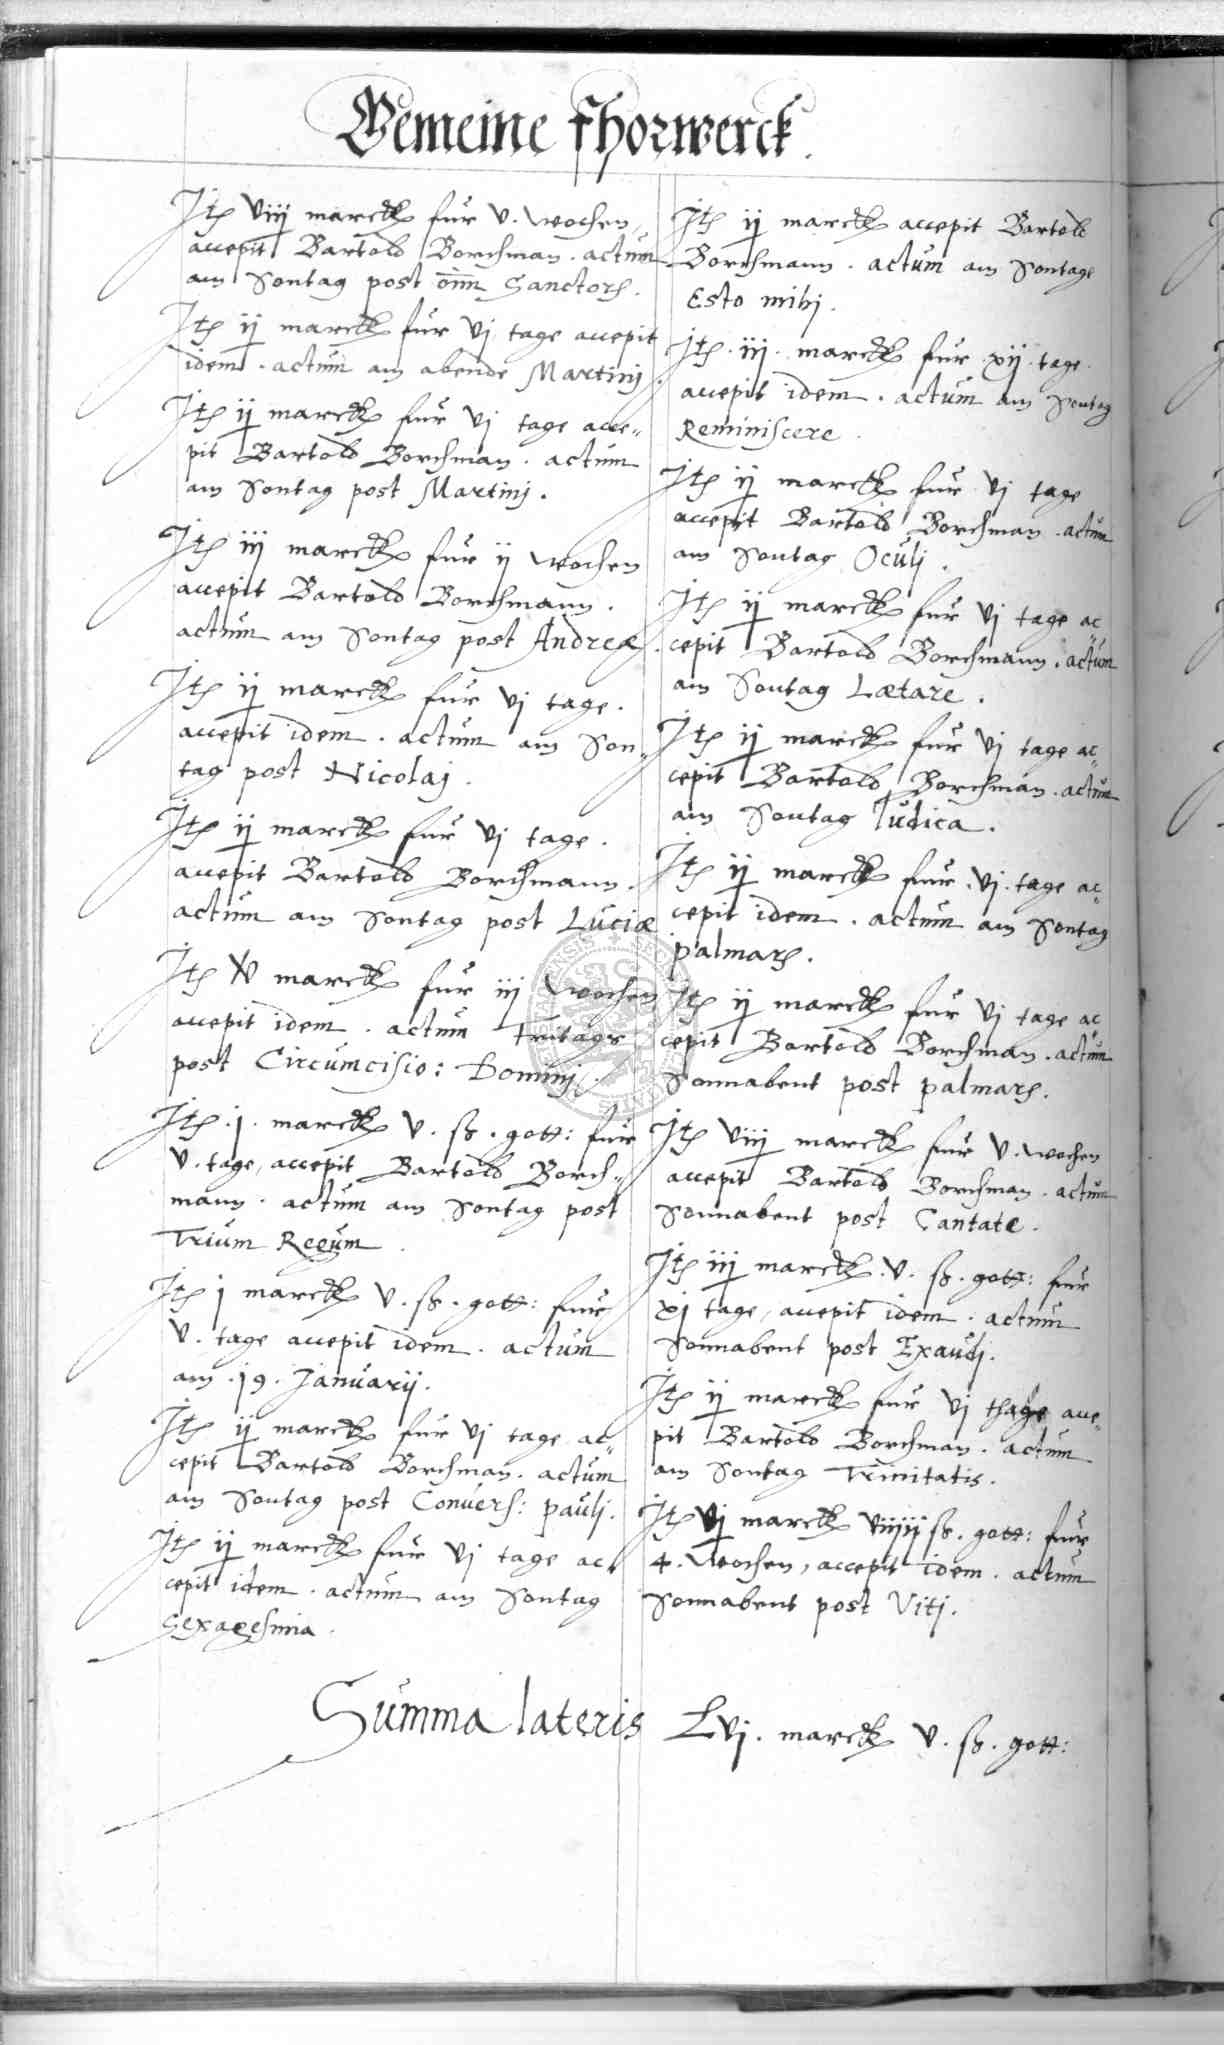 Gemeine fhorwerck.
Itē viij marck fur v. wochen,
accepit Bartold Borchman. actum
am Sontag post oīm Sanctorū.
Itē ij marck fur vj tage accepit
idem. actum am abende Martinj.
Itē ij marck fur vj tage acce„
pit Bartold Borchman. actum
am Sontag post Martinj.
Itē iij marck fur ij wochen
accepit Bartold Borchmann.
actum am Sontag post Andreæ.
Itē ij marck fur vj tage.
accepit idem. actum am Son„
tag post Nicolaj.
Itē ij marck fur vj tage.
accepit Bartold Borchmann.
actum am Sontag post Luciæ
Itē v marck fur iij wochen
accepit idem. actum Fritags
post Circumcisio: Dominj.
Itē .j. marck v. ß. gott: fur
v. tage, accepit Bartold Borch„
mann. actum am Sontag post
Trium Regum.
Itē j marck v. ß. gott: fur
v. tage accepit idem. actum
am .19. Januarij.
Itē ij marck fur vj tage ac„
cepit Bartold Borchman. actum
am Sontag post Convers: paulj.
Itē ij marck fur vj tage ac„
cepit idem. actum am Sontag
Sexagesima.
Itē ij marck accepit Bartold
Borchmann. actum am Sontage
Esto mihj.
Itē .iij. marck fur xij. tage.
accepit idem. actum am Sontag
Reminiscere.
Itē ij marck fur vj tage
accepit Bartold Borchman. actum
am Sontag Oculj.
Itē ij marck fur vj tage ac„
cepit Bartold Borchmann. actum
am Sontag Lætare.
Itē ij marck fur vj tage ac„
cepit Bartold Borchman. actum
am Sontag Iudica.
Itē ij marck fur .vj. tage ac„
cepit idem. actum am Sontag
palmarū.
Itē ij marck fur vj tage ac„
cepit Bartold Borchman. actum
Sonnabent post palmarū.
Itē viij marck fur v. wochen
accepit Bartold Borchman. actum
Sonnabent post Cantate.
Itē iij marck .v. ß. gott: fur
xj tage, accepit idem. actum
Sonnabent post Exaudj.
Itē ij marck fur vj thage acce„
pit Bartold Borchman. actum
am Sontag Trinitatis.
Itē vj marck viiij ß. gott: fur
4. wochen, accepit idem. actum
Sonnabent post Vitj.
Summa lateris Lvj. marck v. ß. gott: